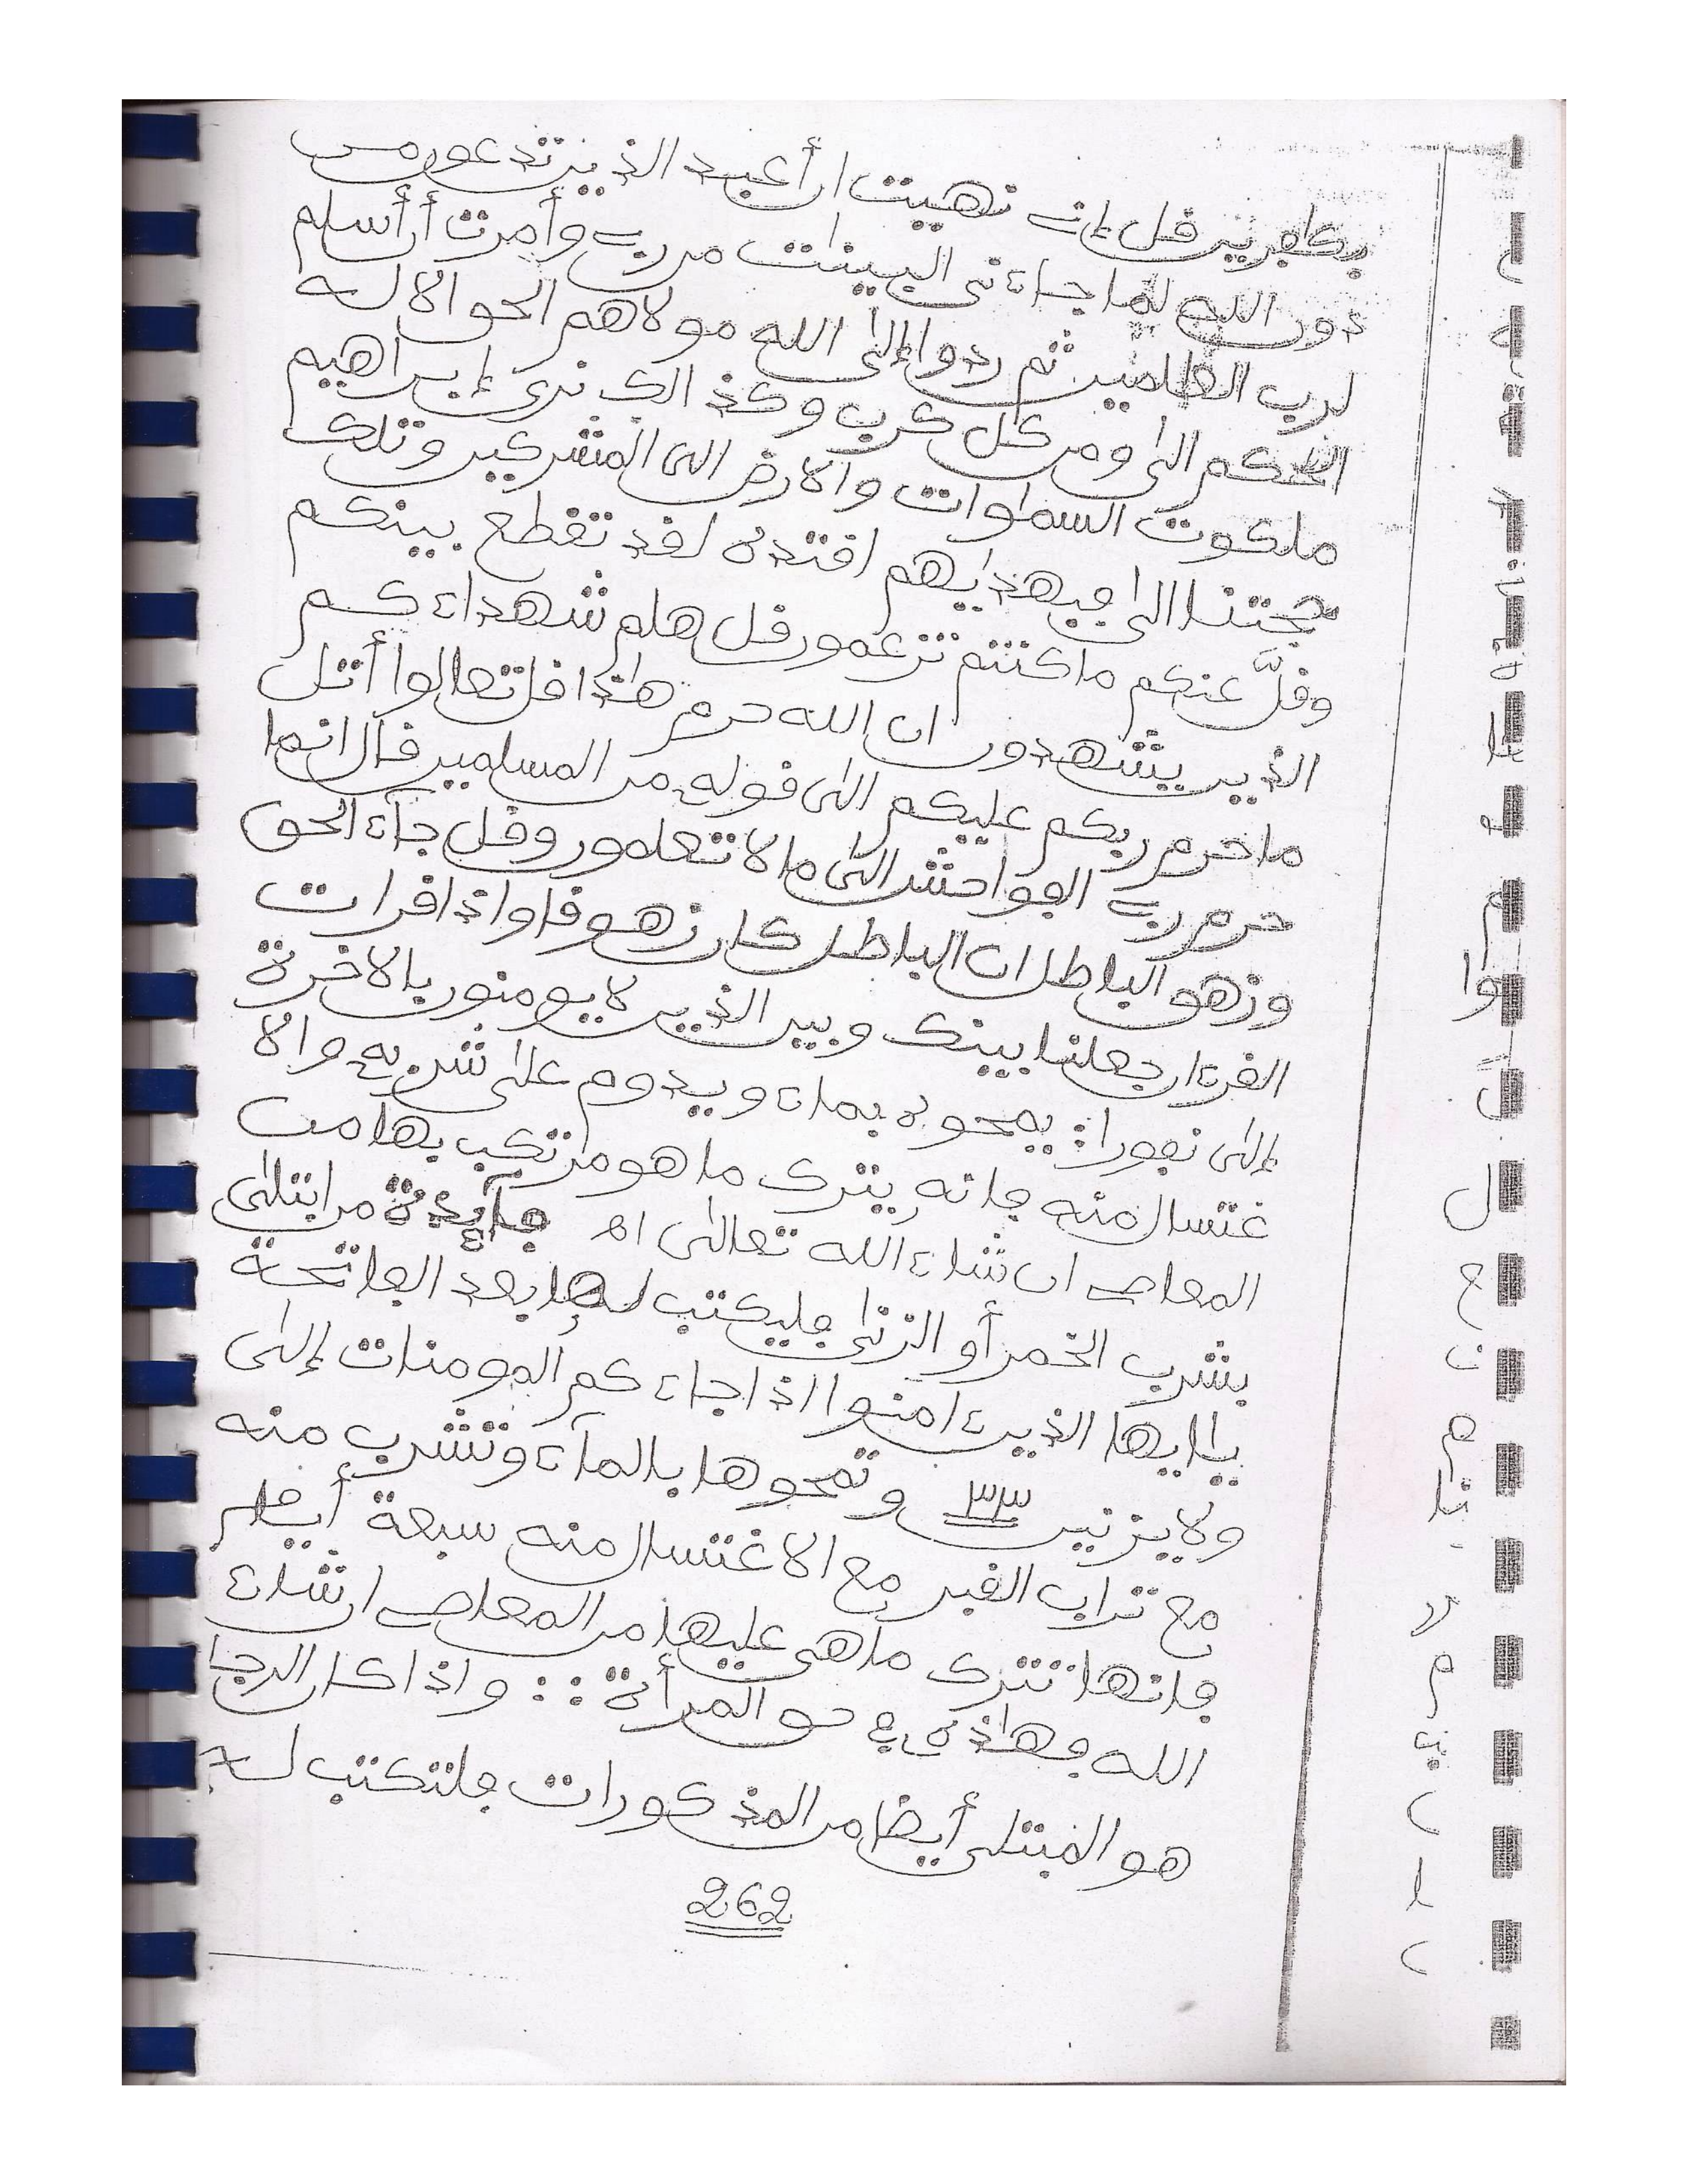 بكافرين قل إني نهيت ان أعبد الذين تدعون من
دون الله لما جاءني البينات من ربي وأمرت أن أسلم
لرب العالمين ثم ردوا إلى الله مولاهم الحق الا له
الحكم الى ومن كل كرب وكذالك نرى إبراهيم
ملكوت السماوات والارض الى المشركين وتلك
حجتنا الى فبهداهم اقتده لقد تقطع بينكم
وضلّ عنكم ما كنتم تزعمون قل هلم شهداءكم
الذين يشهدون ان الله حرم هاذا قل تعالوا أتل
ما حرم ربكم عليكم الى قوله من المسلمين قال انما
حرم ربي الفواحش الى ما لا تعلمون وقل جاء الحق
وزهق الباطل ان الباطل كان زهوقا واذا قرات
القرءان جعلنا بينك وبين الذين لا يومنون بالاخرة
إلى نفورا: يمحوه بماء ويدوم على شربه والا
غتسال منه فإنه يترك ما هو مرتكب بها من
المعاصي ان شاء الله تعالى اه فائدة من ابتلى
بشرب الخمر أو الزنى فليكتب لها بعد الفاتحة
يأيها الذين ءامنوا اذا جاءكم المومنات إلى
ولا يزنين ٣٣ وتمحوها بالماء وتشرب منه
مع تراب القبر مع الاغتسال منه سبعة أيام
فإنها تترك ما هي عليها من المعاصي ان شاء
الله فهاذه في حق المرأة :: واذا كان الرجل
هو المبتلى أيضا من المذكورات فلتكتب له
262